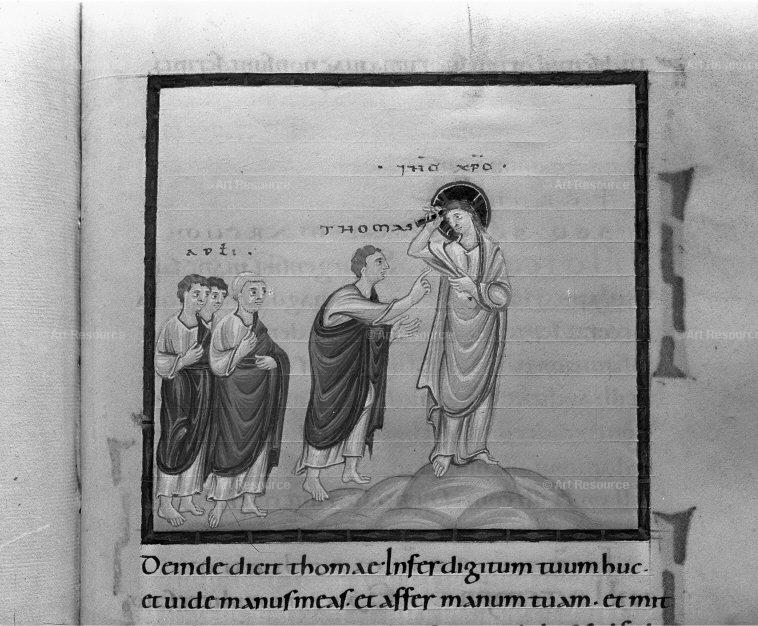 · IHC XPC ·
THOMAS
APLI ·
Deinde dicit thomae Infer digitum tuum huc ·
et uide manus meas · et affer manum tuam · et mit
© Art Resource
© Art Resource
© Art Resource
© Art Resource
© Art Resource
© Art Resource
© Art Resource
© Art Resource
© Art Resource
© Art Resource
© Art Resource